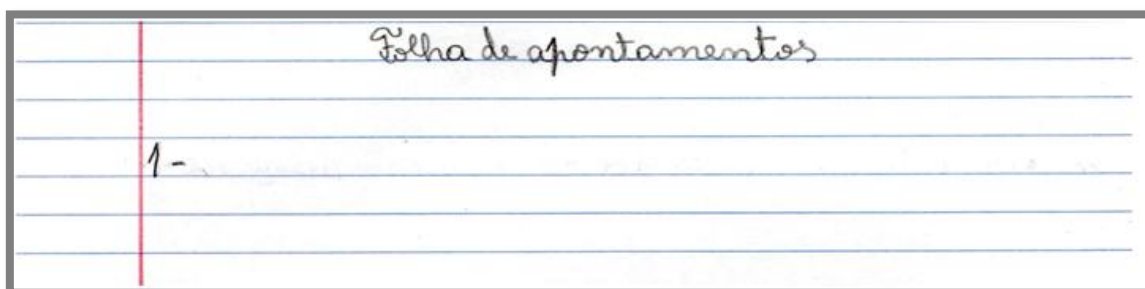 Folha de apontamentos
1-